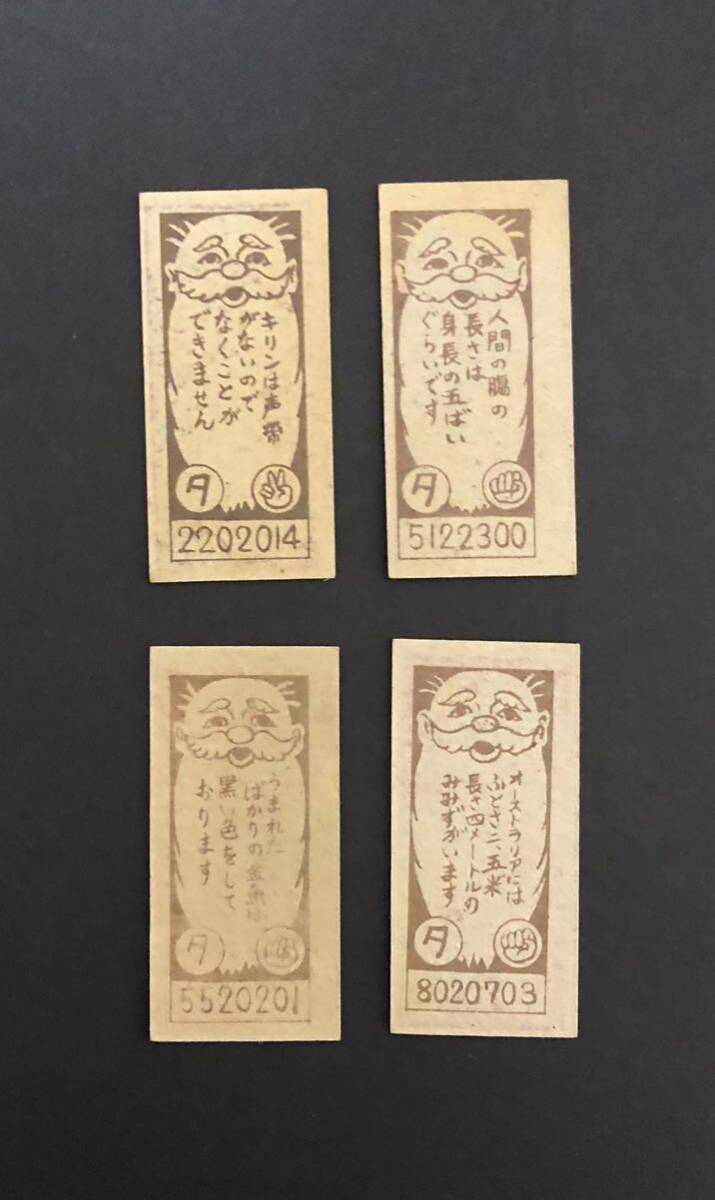 キリンは声帯
がないので
なくことが
できません
タ
2202014
人間の腸の
長さは
身長の五ばい
ぐらいです
タ
5122300
うまれた
ばかりの金魚は
黒い色をして
おります
タ
5520201
オーストラリアには
ふとさ二、五米
長さ四メートルの
みみずがいます
タ
8020703